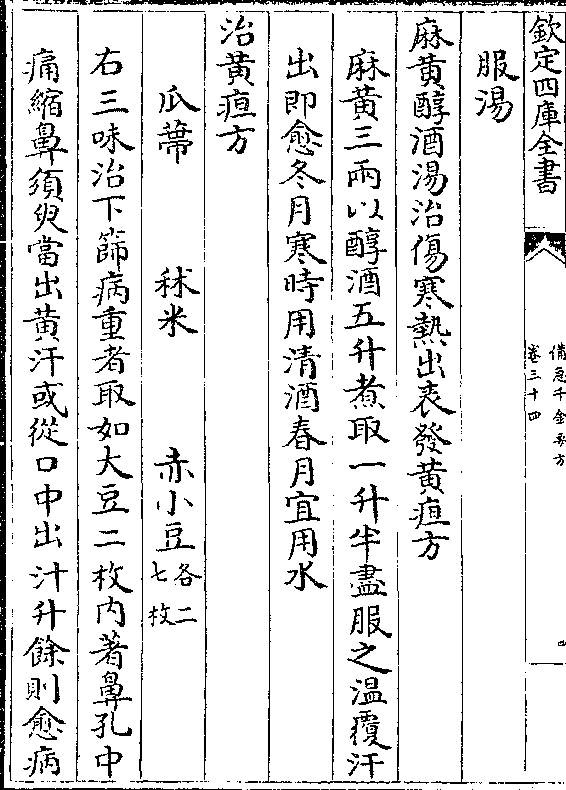 欽定四庫全書
備急千金要方
卷三十四
服湯
麻黄醇酒湯治傷寒熱出表發黄疸方
麻黄三兩以醇酒五升煮取一升半盡服之温覆汗
出即愈冬月寒時用清酒春月宜用水
治黄疸方
瓜蔕 秫米 赤小豆各二七枚
右三味治下篩病重者取如大豆二枚内著鼻孔中
痛縮鼻須臾當出黄汗或從口中出汁升餘則愈病